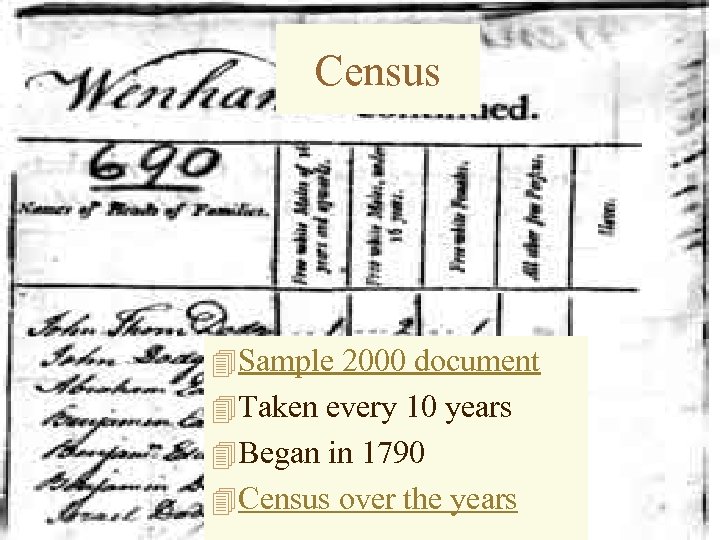 Census
Wenham
Continued.
690
Names of Heads of Families.
Free white Males of 16 years and upwards.
Free white Males, under 16 years.
Free white Females.
All other free Persons.
Slaves.
John Thom Dodge 1 2 1
John Dodg
Abraham
Benjamin
Benjam
Benjamin
Israel Dod
Sample 2000 document
Taken every 10 years
Began in 1790
Census over the years